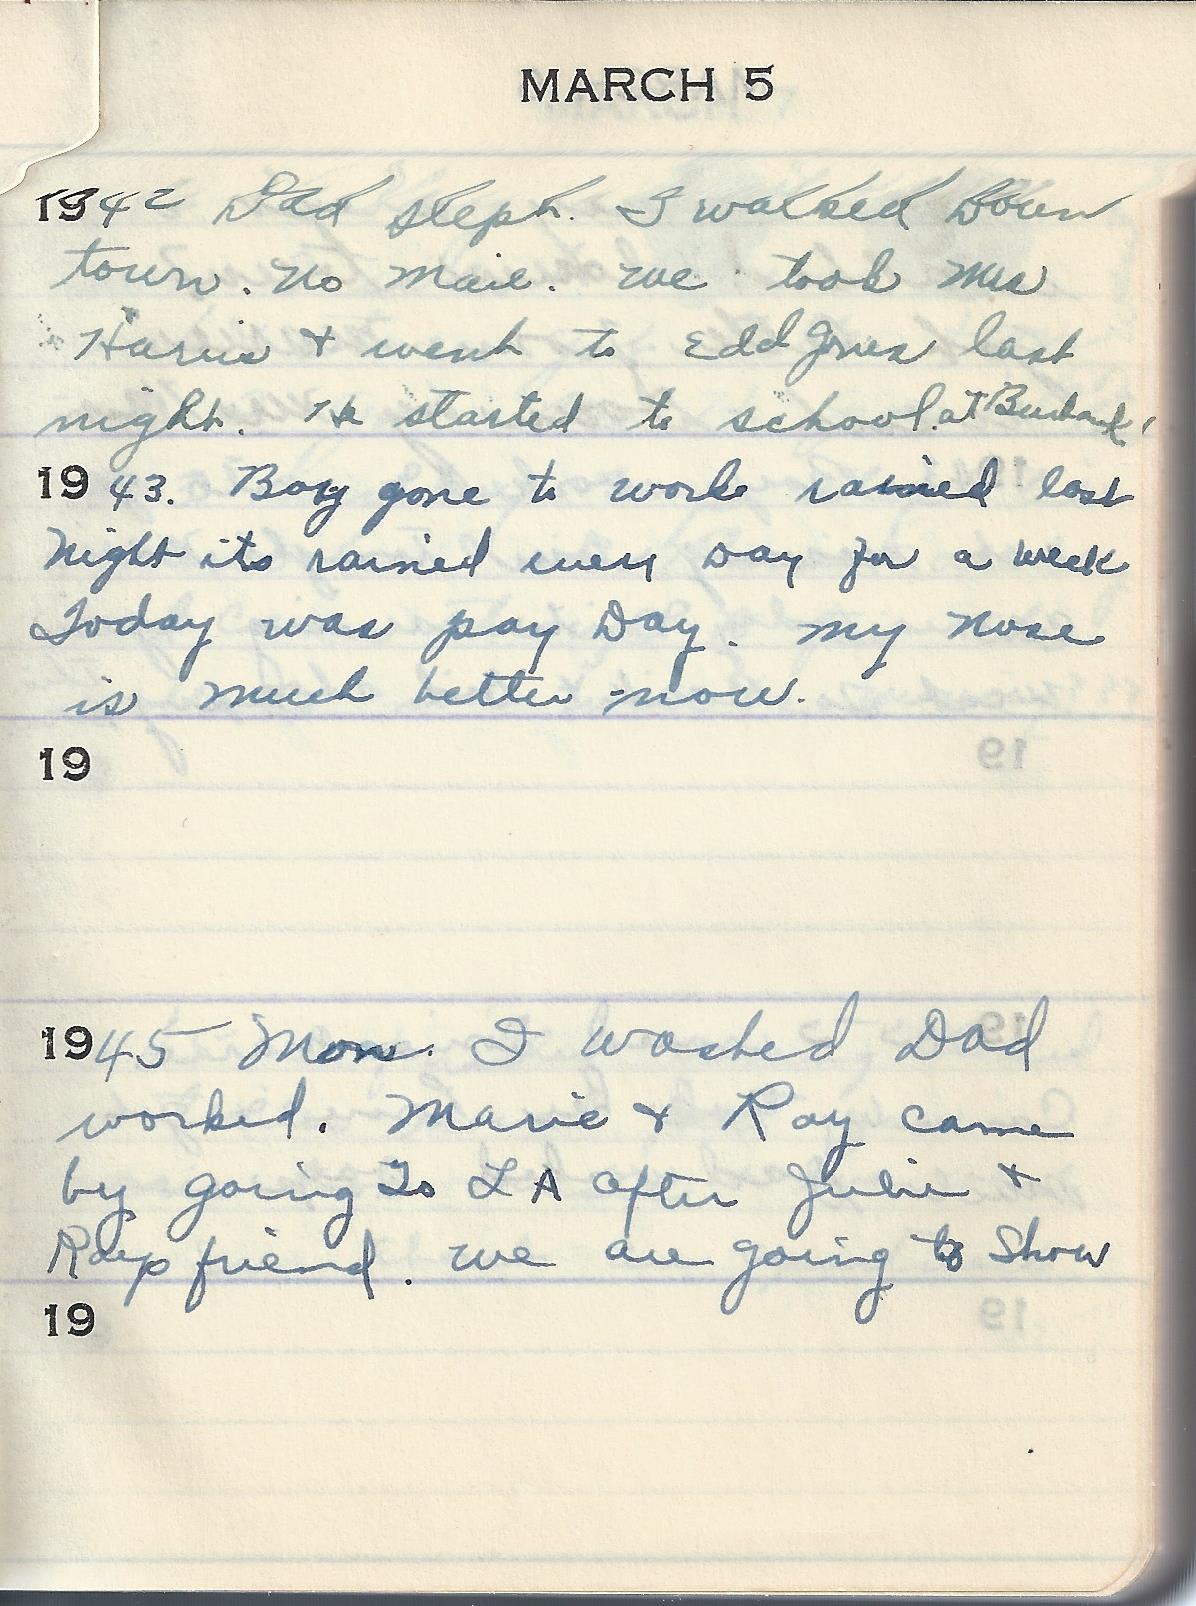 MARCH 5
1942 Dad slept. I walked Down
town. No Mail. We took Mrs
Harris & went to Edd Jones last
night. He started to school. at Burbank
1943. Boy gone to work rained last
Night its rained every Day for a week
Today was pay Day. My Nose
is much better now.
19
1945 Mon. I washed Dad
worked. Marie & Ray came
by going To LA after Julie &
Rays friend. We are going to Show
19